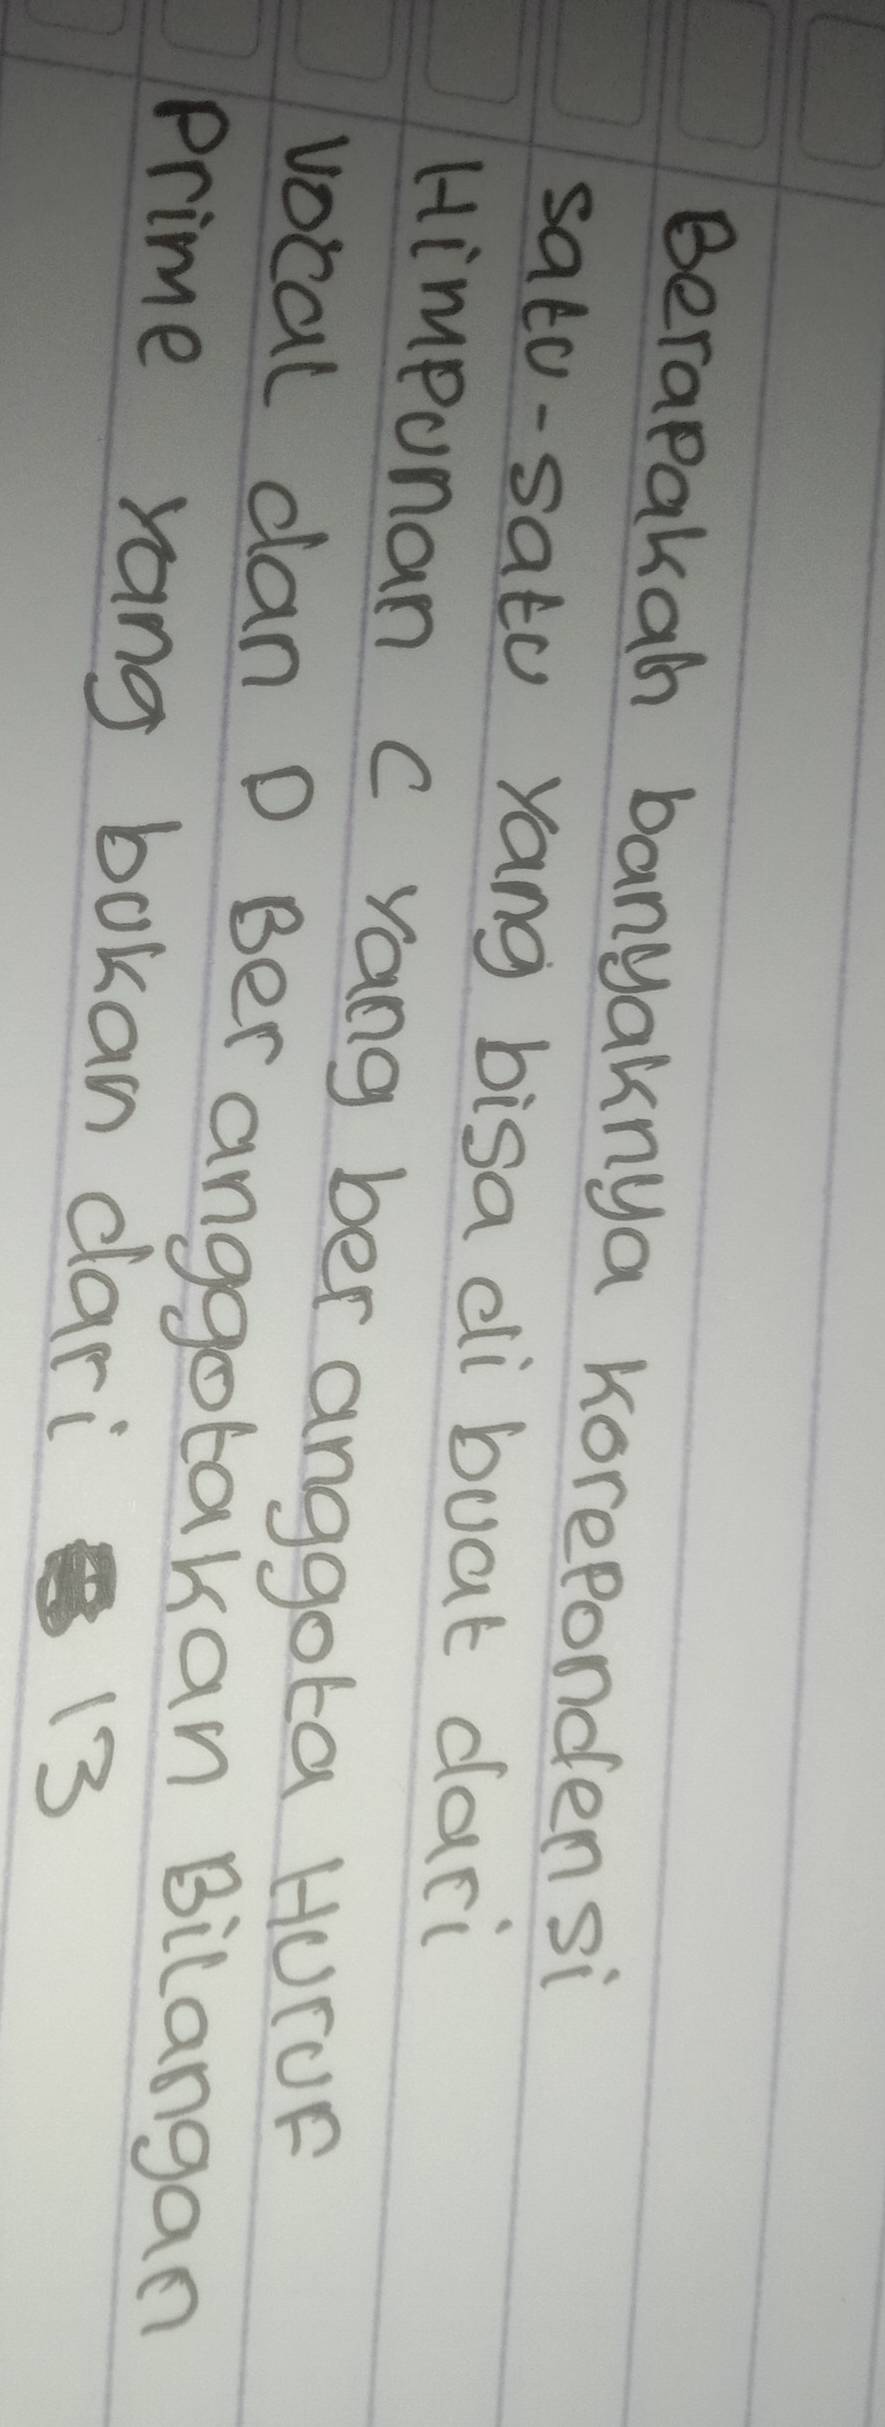 Berapakah banyaknya korepondensi
satu-satu yang bisa di buat dari
Himpunan C yang ber anggota Huruf
vocal dan D Ber anggotakan Bilangan
Prime yang bukan dari 13